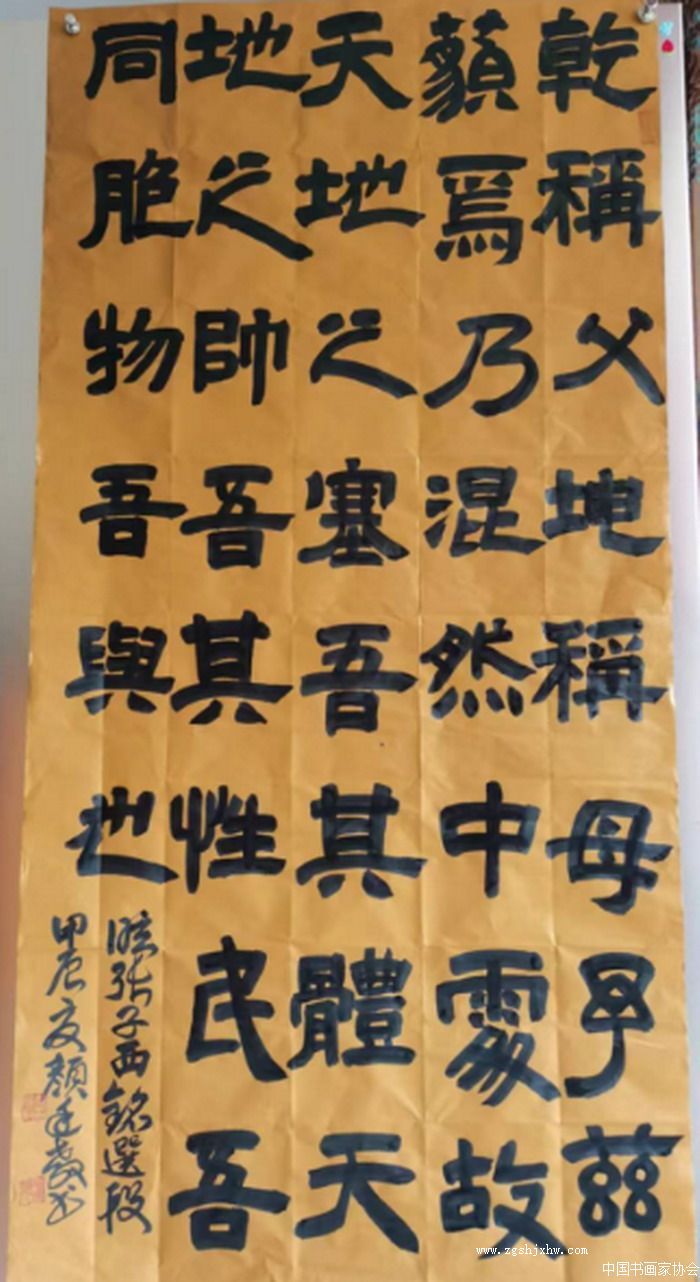 乾稱父坤稱母予兹
藐焉乃混然中處故
天地之塞吾其體天
地之帥吾其性民吾
同胞物吾與也
张子西銘選段
甲辰夏顏廷书
www.zgshjxhw.com
中国书画家协会